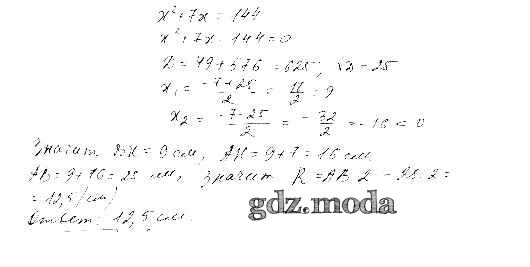 x² + 7x = 144
x² + 7x - 144 = 0
D = 49 + 576 = 625, √D = 25
x₁ = (-7+25)/2 = = 9
x₂ = (-7-25)/2 = -32/2 = -16 < 0
Значит BK = 9 см, AK = 9+7 = 16 см
AB = 9+16 = 25 см, значит R = AB : 2 = 25 : 2 =
= 12,5 (см)
Ответ: 12,5 см.
gdz.moda